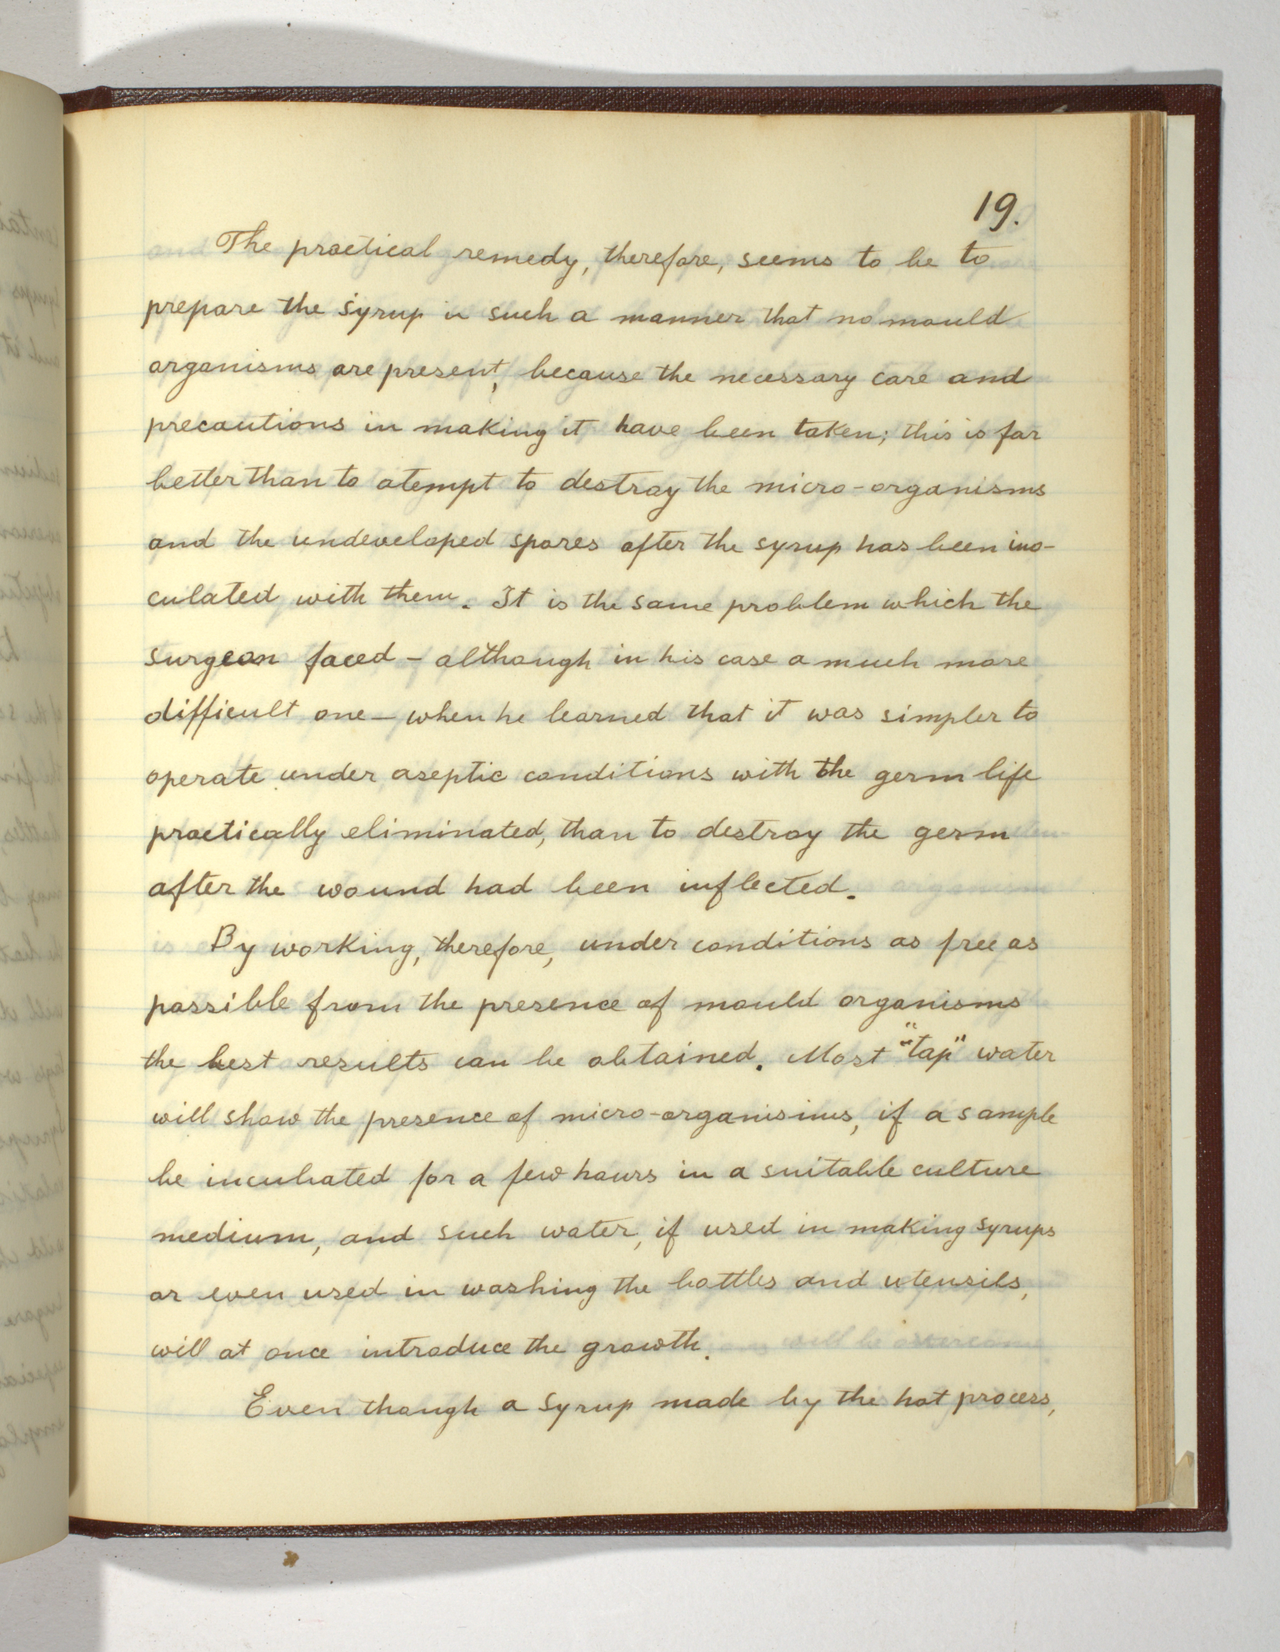 19.
The practical remedy, therefore, seems to be to
prepare the syrup in such a manner that no mould
organisms are present, because the necessary care and
precautions in making it have been taken; this is far
better than to atempt to destroy the micro-organisms
and the undeveloped spores after the syrup has been ino-
culated with them. It is the same problem which the
surgeon faced - although in his case a much more
difficult one - when he learned that it was simpler to
operate under aseptic conditions with the germ life
practically eliminated, than to destroy the germ
after the wound had been inflected.
By working, therefore, under conditions as free as
possible from the presence of mould organisms
the best results can be obtained. Most "tap" water
will show the presence of micro-organisims, if a sample
be incubated for a few hours in a suitable culture
medium, and such water, if used in making syrups
or even used in washing the bottles and utensils,
will at once introduce the growth.
Even though a syrup made by the hot process,